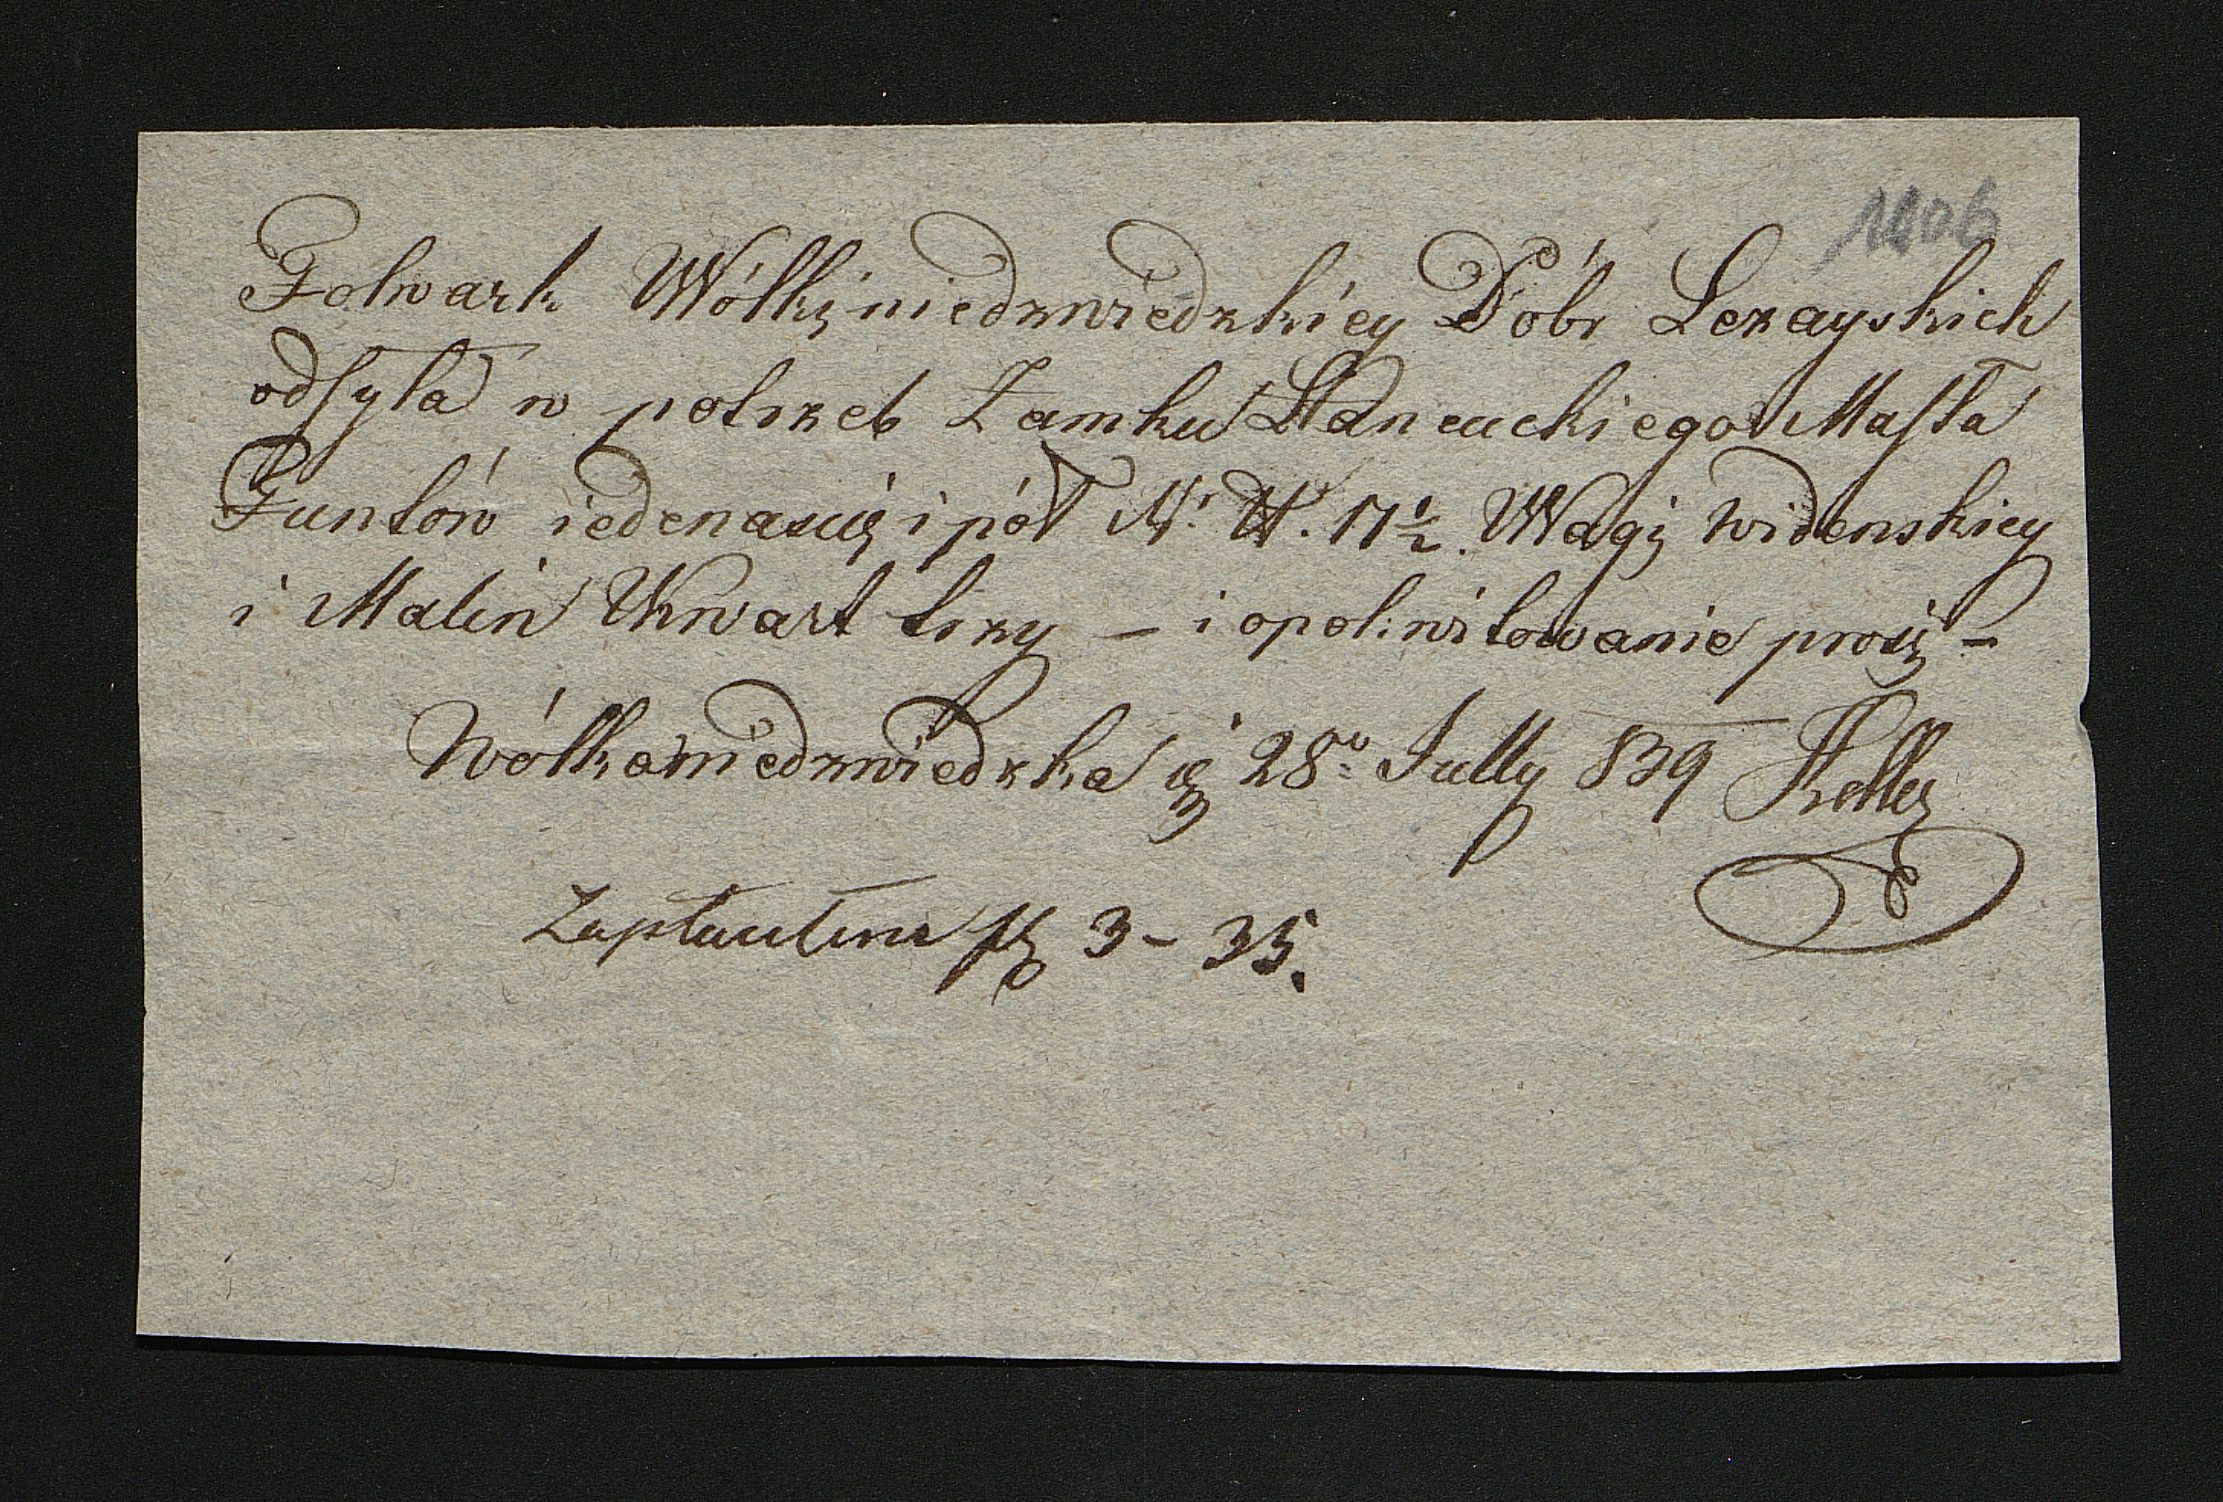 1406
Folwark Wólki niedzwiedzkiey Dóbr Lezayskich
odsyła w potrzeb Zamku Łancuckiego Masła
Funtów iedenaście i pół Nr. 11½. Wagi widenskiey
i Malin Kwart trzy — i o pokwitowanie prosi –
Wólka niedzwiedzka 28º July 839 Keller
Zapłaciłem 3 – 35.